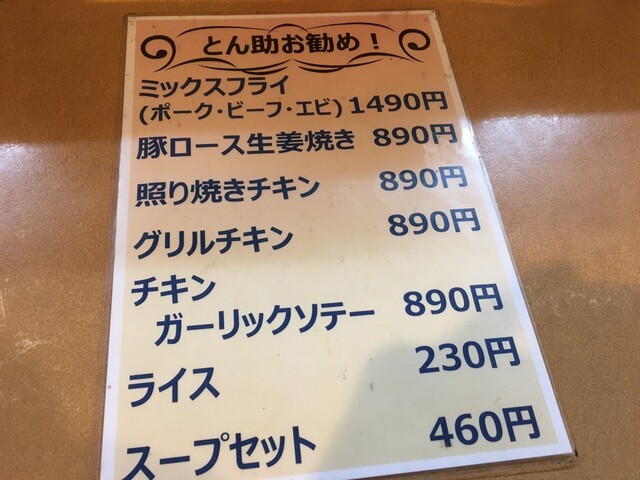 とん助お勧め！
ミックスフライ
(ポーク・ビーフ・エビ) 1490円
豚ロース生姜焼き 890円
照り焼きチキン 890円
グリルチキン 890円
チキン
ガーリックソテー 890円
ライス 230円
スープセット 460円